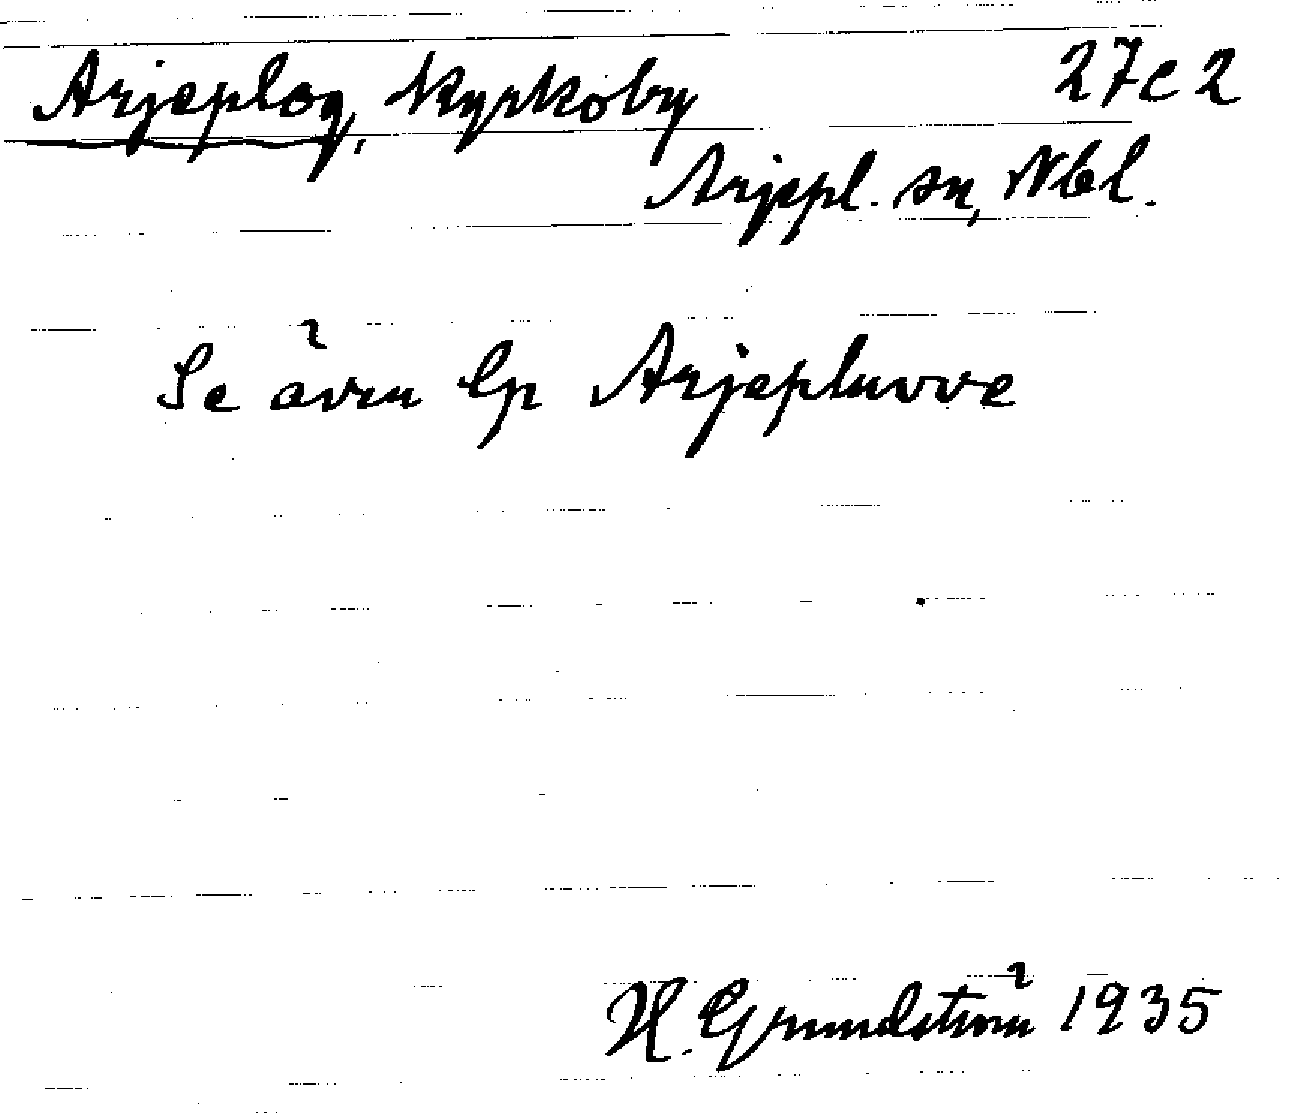 Arjeplog, kyrkoby 27c2
Arjepl. sn, Nbl.
Se även lp Arjepluvve
H. Grundström 1935